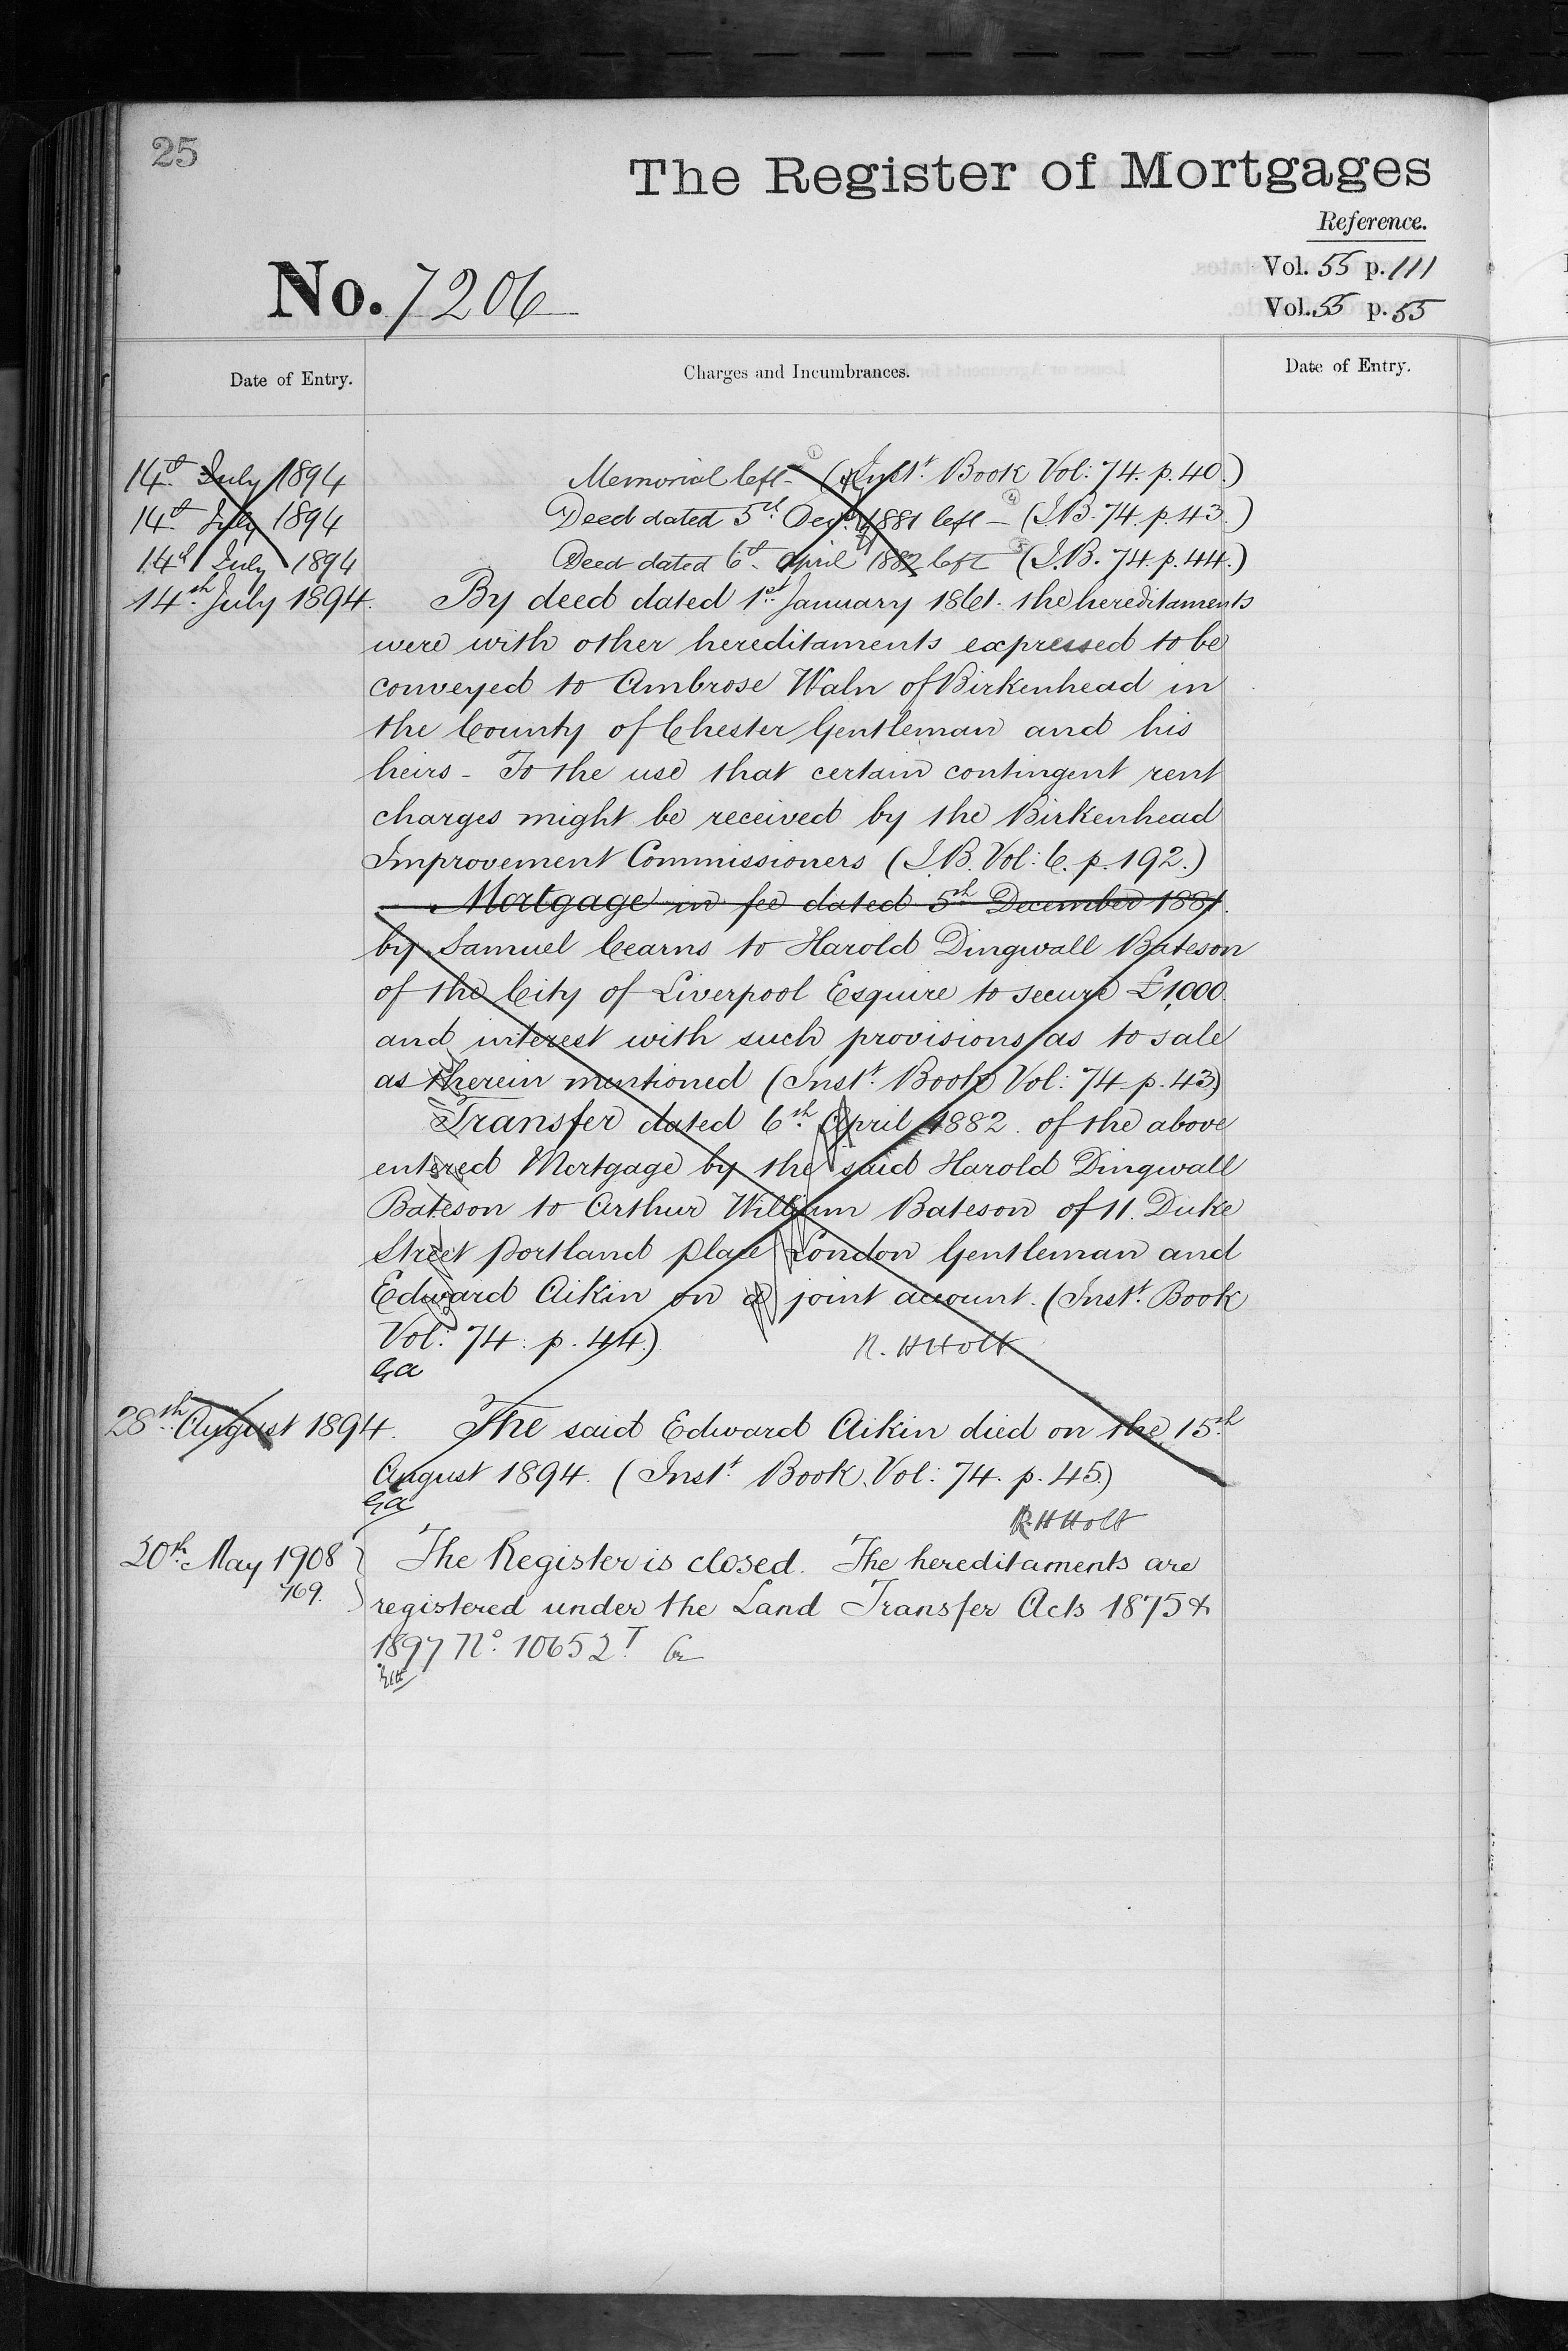 25
The Register of Mortgages
Reference.
Vol. 55 p. 111
Vol. 55 p. 55
No. 7206
Date of Entry. Charges and Incumbrances. Date of Entry.
14th July 1894 Memorial left - (Inst. Book Vol: 74. p. 40.)
14th July 1894 Deed dated 5th Decr. 1881 left - (I.B. 74. p. 43.)
14th July 1894 Deed dated 6th April 1882 left (I.B. 74. p. 44.)
14th July 1894. By deed dated 1st January 1861. the hereditaments
were with other hereditaments expressed to be
conveyed to Ambrose Waln of Birkenhead in
the County of Chester Gentleman and his
heirs - To the use that certain contingent rent
charges might be received by the Birkenhead
Improvement Commissioners (I.B. Vol: 6. p. 192.)
Mortgage in fee dated 5th December 1881.
by Samuel Cearns to Harold Dingwall Bateson
of the City of Liverpool Esquire to secure £1,000.
and interest with such provisions as to sale
as therein mentioned (Inst. Book Vol: 74 p. 43)
Transfer dated 6th April 1882. of the above
entered Mortgage by the said Harold Dingwall
Bateson to Arthur William Bateson of 11. Duke
Street Portland Place London Gentleman and
Edward Aikin on a joint account. (Inst. Book
Vol: 74: p. 44.) R. H Holt
Ga
28th August 1894. The said Edward Aikin died on the 15th
August 1894. (Inst. Book, Vol: 74. p. 45.)
Ga
R. H Holt
20th May 1908 The Register is closed. The hereditaments are
769. registered under the Land Transfer Acts 1875 &
1897 No. 10652T